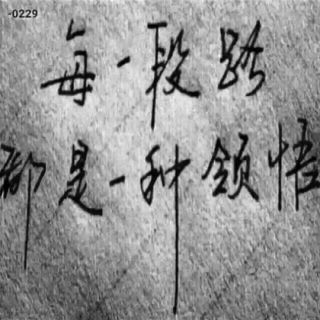 -0229
每一段路
都是一种领悟